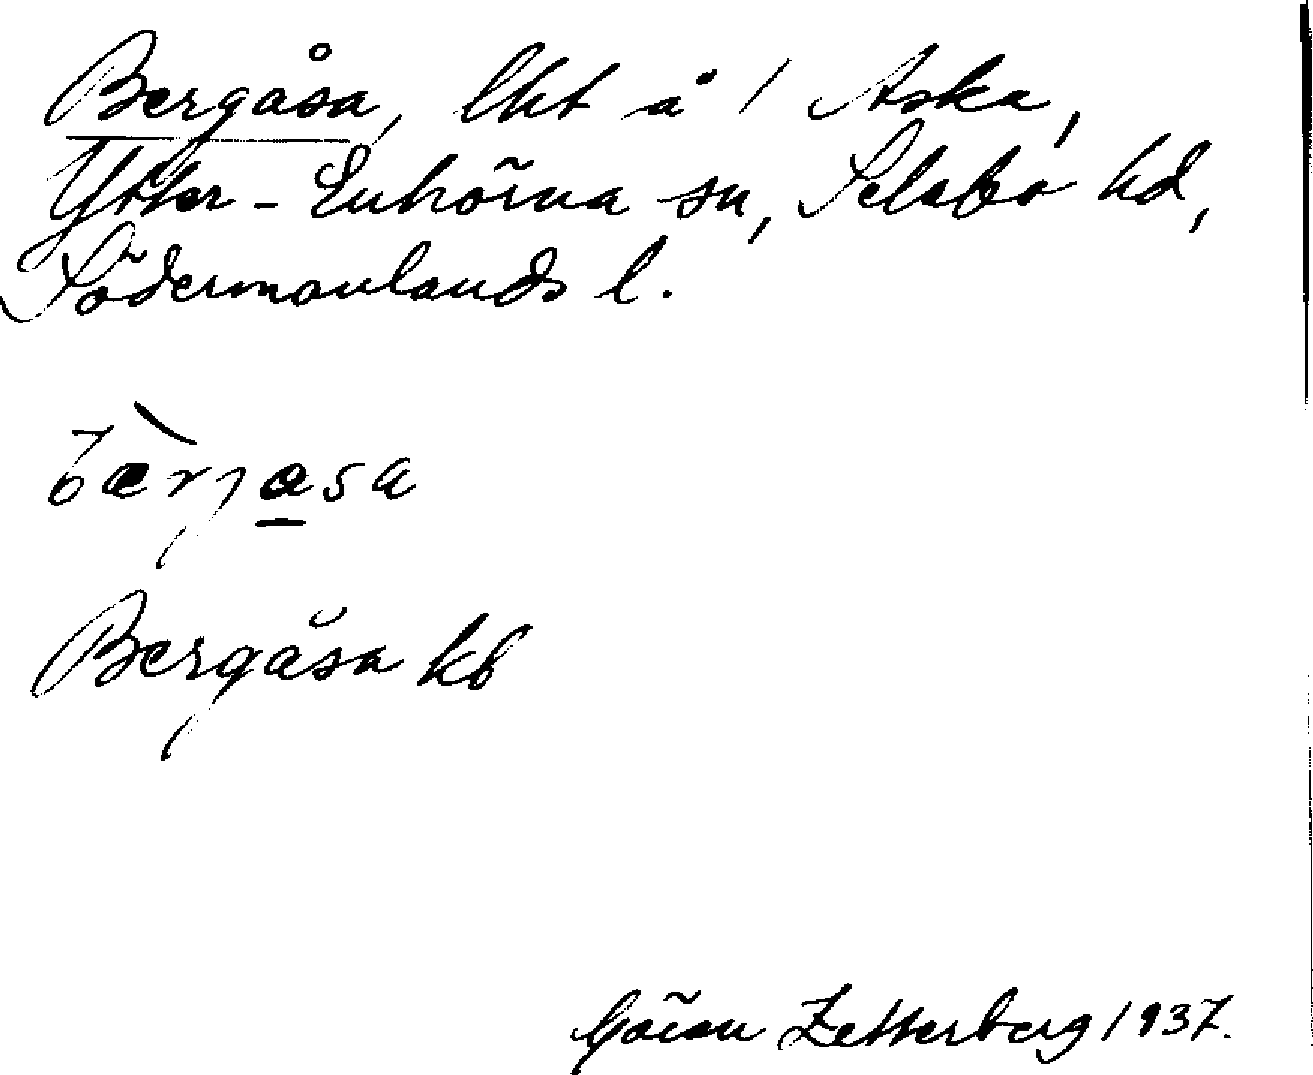 Bergåsa, lht å 1 Aska,
Ytter-Enhörna sn, Selebo hd,
Södermanlands l.
bærjasa
Bergåsa kb
Göran Zetterberg 1937.